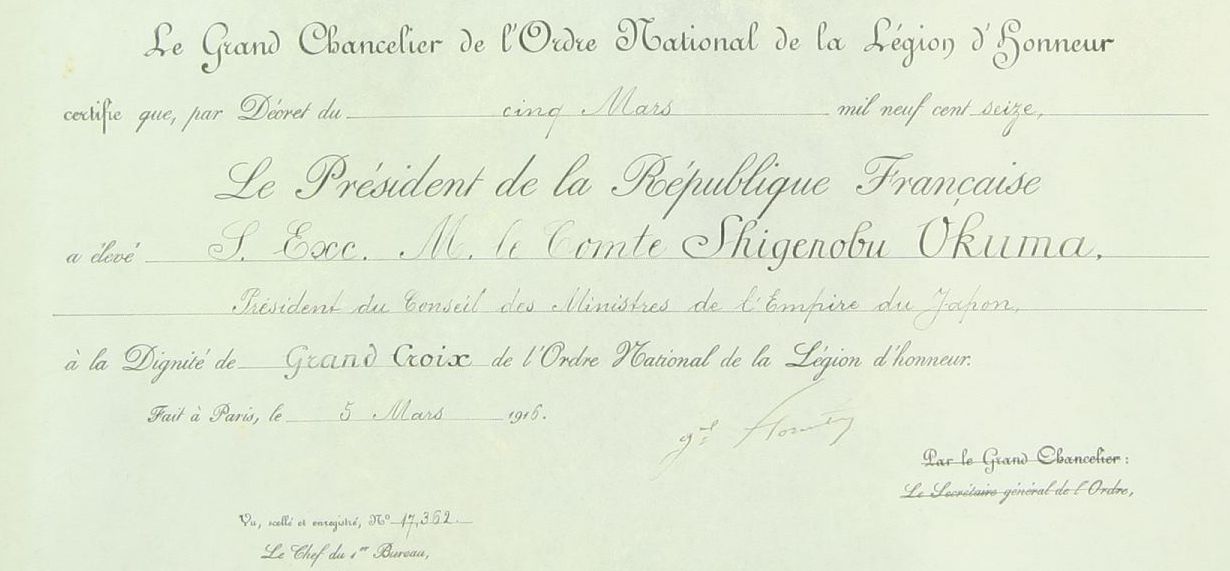 Le Grand Chancelier de l'Ordre National de la Légion d'Honneur
certifie que, par Décret du cinq Mars mil neuf cent seize,
Le Président de la République Française
a élevé S. Exc. M. le Comte Shigenobu Okuma,
Président du Conseil des Ministres de l'Empire du Japon,
à la Dignité de Grand Croix de l'Ordre National de la Légion d'honneur.
Fait à Paris, le 5 Mars 1916.
Par le Grand Chancelier :
Le Secrétaire général de l'Ordre,
Vu, scellé et enregistré, N° 17,362.
Le Chef du 1er Bureau,